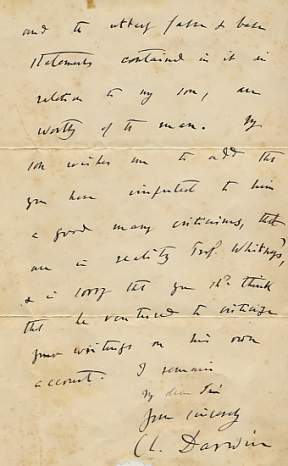 and the utterly false & base
statements contained in it in
relation to my son, are
worthy of the man. My
son wishes me to add that
you have imputed to him
a good many criticisms, that
are in reality Prof. Whitney's,
& is sorry that you shd. think
that he ventured to criticise
your writings on his own
account. I remain
My dear Sir
Yours sincerely
Ch. Darwin